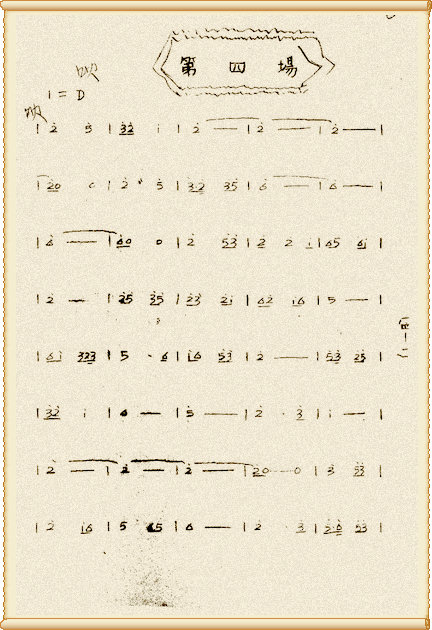 第四場
1 = D
| 2 5 | 32 1 | 2 | 2 | 2 — |
| 20 0 | 2 5 | 32 35 | 6 | 6 — |
| 6 — | 60 0 | 2 53 | 2 2 1 | 65 61 |
| 2 — | 25 35 | 23 21 | 62 16 | 5 — |
| 61 323 | 5 · 6 | 16 53 | 2 — | 53 25 |
| 32 1 | 6 — | 5 — | 2 · 3 | 1 — |
| 2 — | 2 — | 2 — | 20 0 | 3 53 |
| 2 16 | 5 65 | 6 — | 2 3 | 56 53 |